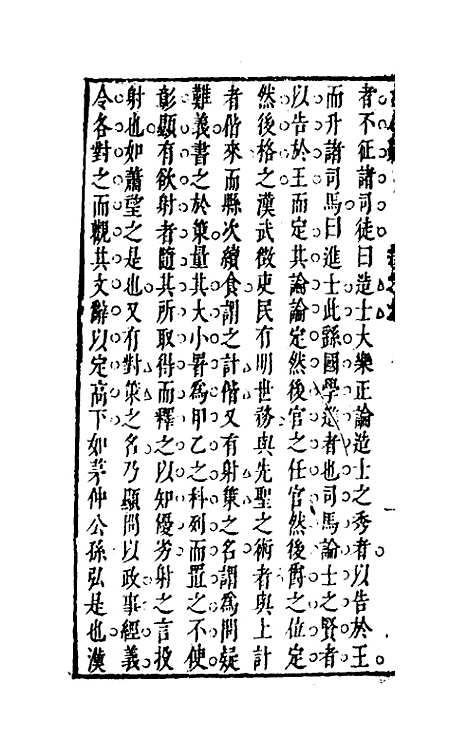 者不征諸司徒曰造士大樂正論造士之秀者以告於王
而升諸司馬曰進士此繇國學進者也司馬論士之賢者
以告於王而定其論論定然後官之任官然後爵之位定
然後格之漢武徵吏民有明世務與先聖之術者與上計
者偕來而縣次續食謂之計偕又有射策之名謂為問疑
難義書之於策量其大小署為甲乙之科列而置之不使
彰顯有欲射者隨其所取得而釋之以知優劣射之言投
射也如蕭望之是也又有對策之名乃顯問以政事經義
令各對之而觀其文辭以定高下如茅仲公孫弘是也漢